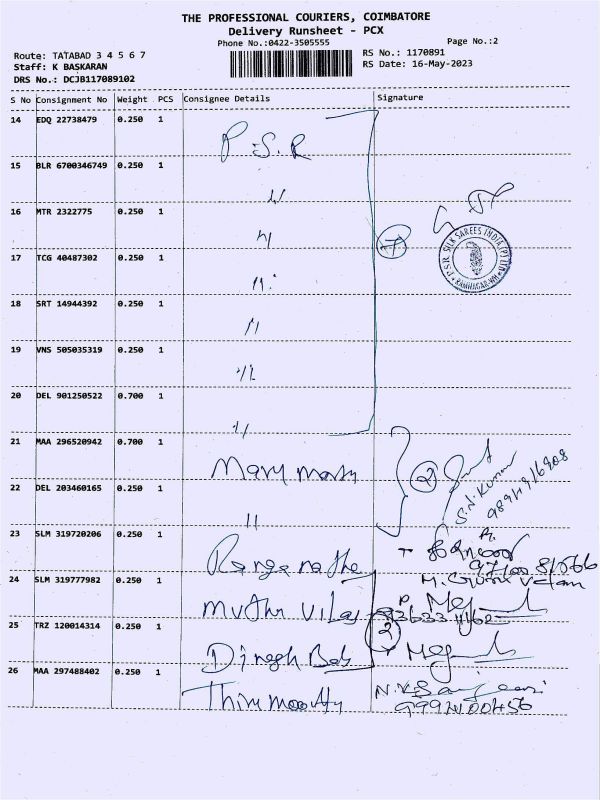 THE PROFESSIONAL COURIERS, COIMBATORE
Delivery Runsheet - PCX
Phone No.:0422-3505555
Page No.:2
Route: TATABAD 3 4 5 6 7
Staff: K BASKARAN
DRS No.: DCJB117089102
RS No.: 1170891
RS Date: 16-May-2023
S No Consignment No Weight PCS Consignee Details Signature
14 EDQ 22738479 0.250 1 P.S.R
15 BLR 6700346749 0.250 1 "
16 MTR 2322775 0.250 1 "
7
P.S.R SILK SAREES INDIA (P) LTD
RAMNAGAR
17 TCG 40487302 0.250 1 "
18 SRT 14944392 0.250 1 "
19 VNS 505035319 0.250 1 "
20 DEL 901250522 0.700 1 "
21 MAA 296520942 0.700 1 Mary
2
S.N.Kumar
22 DEL 203460165 0.250 1 "
23 SLM 319720206 0.250 1
24 SLM 319777982 0.250 1 Muthu Vilas
25 TRZ 120014314 0.250 1 Dinesh
2
26 MAA 297488402 0.250 1 Thiru